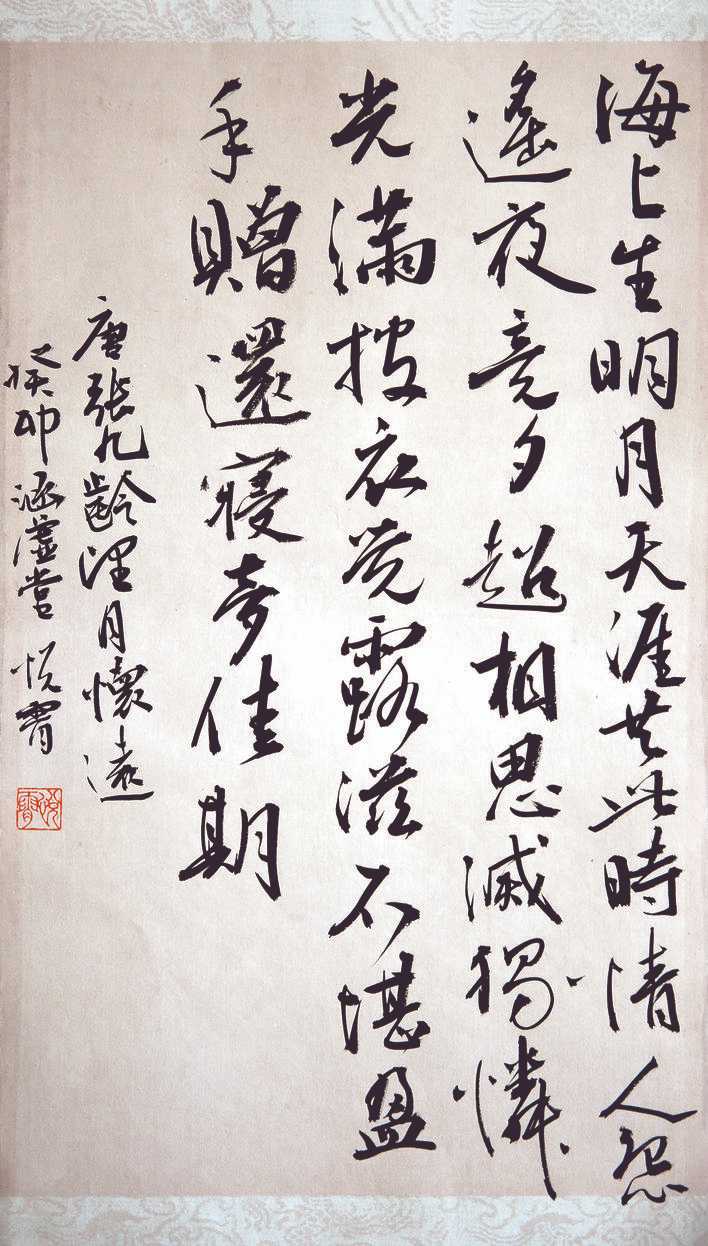 海上生明月天涯共此時情人怨
遙夜竟夕起相思滅燭憐
光滿披衣覺露滋不堪盈
手贈還寢夢佳期
唐張九齡望月懷遠
癸卯涵虛堂悅霄
悅霄